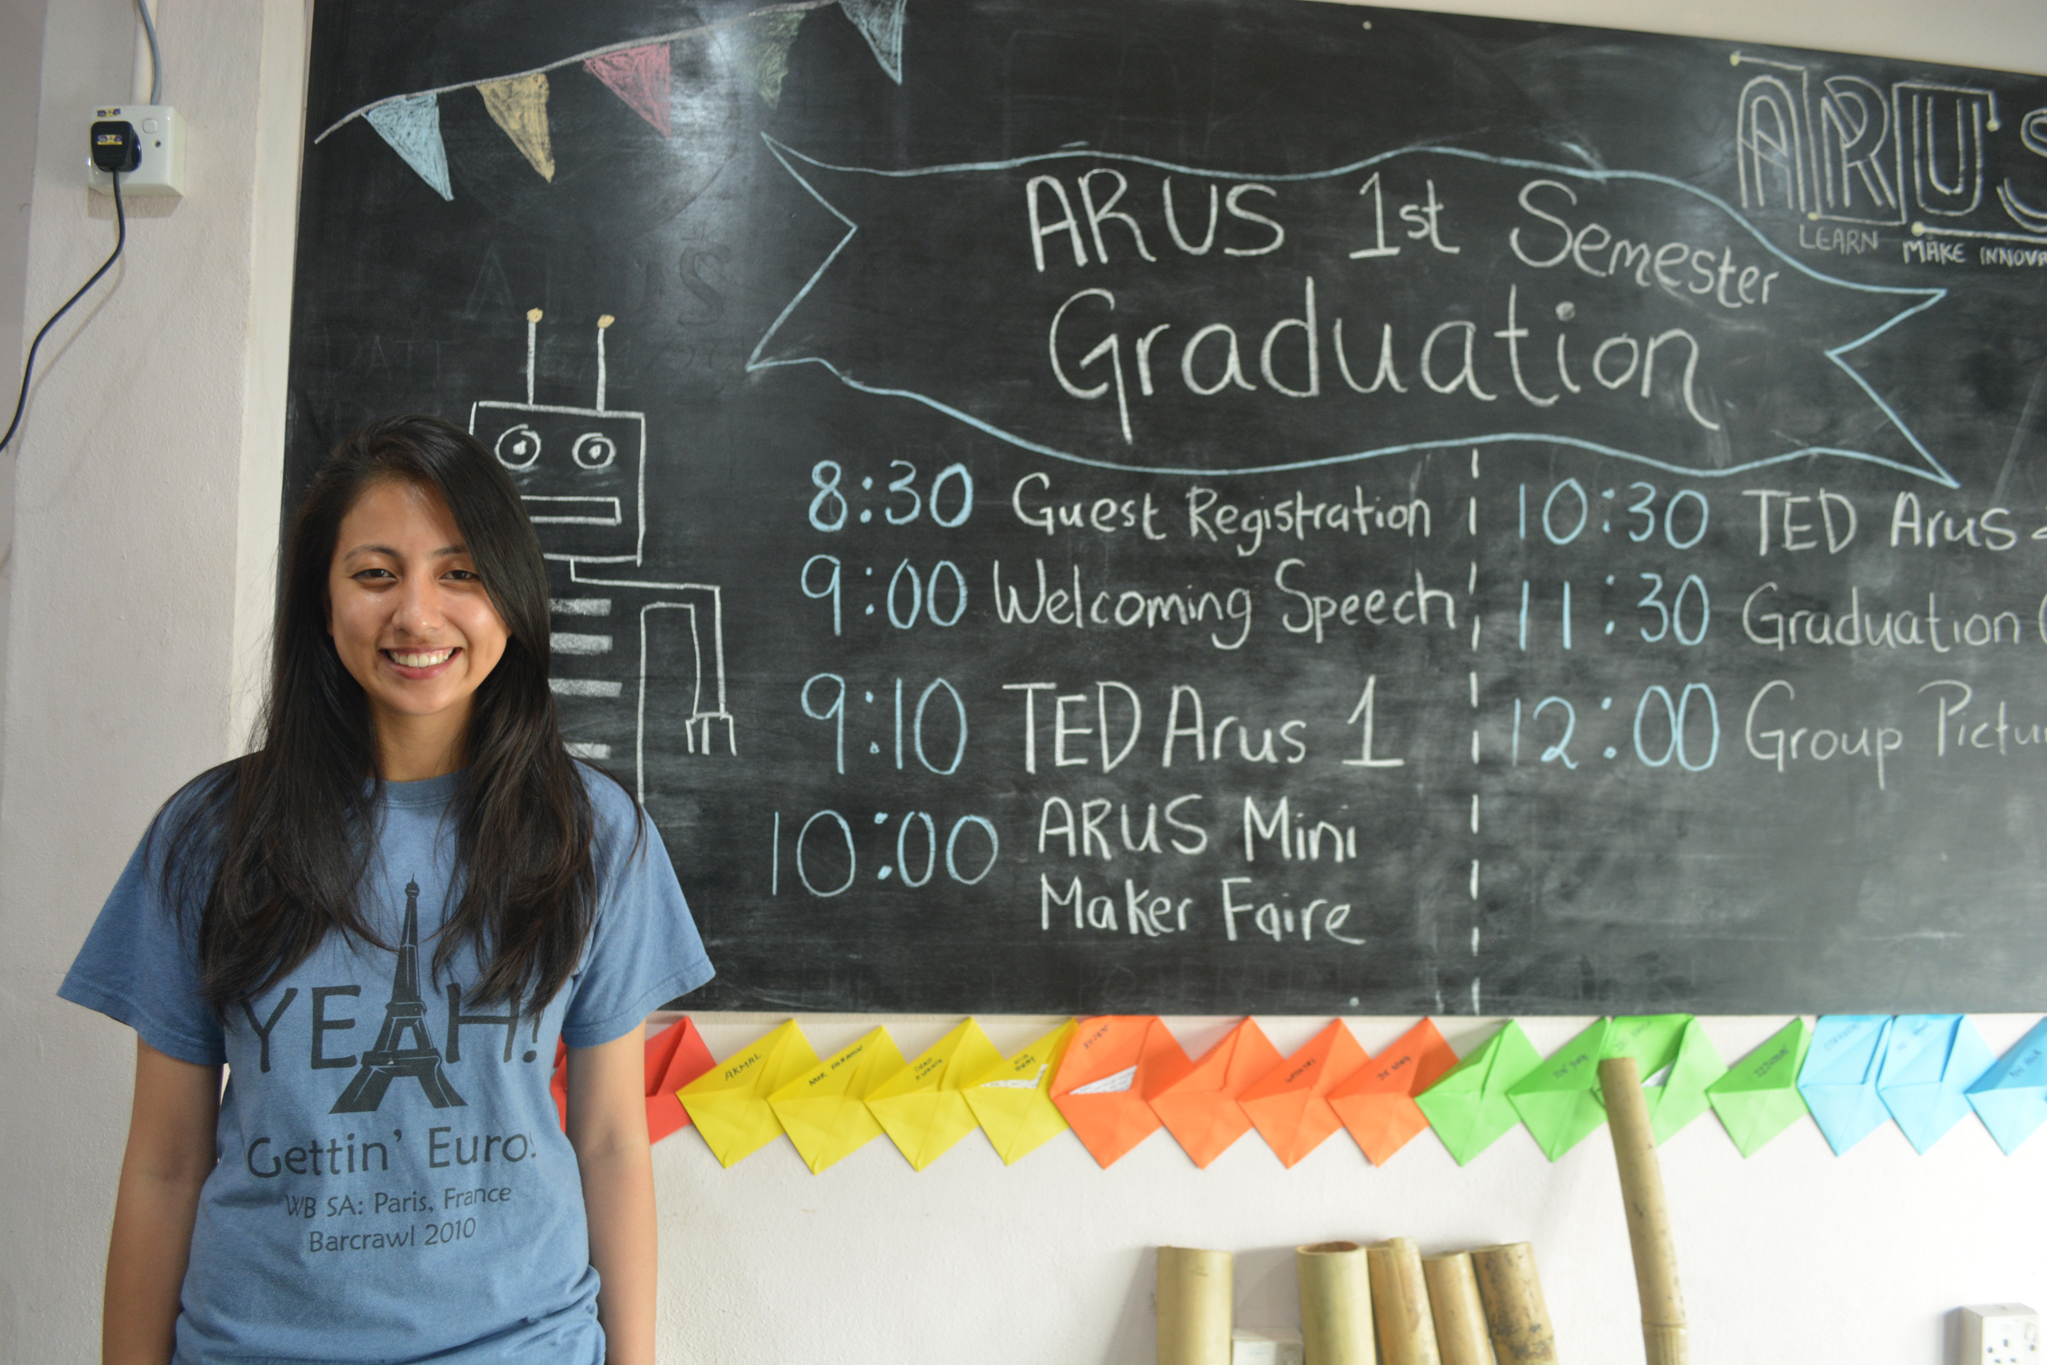 ARUS
LEARN MAKE
ARUS 1st Semester
Graduation
8:30 Guest Registration
9:00 Welcoming Speech
9:10 TED Arus 1
10:00 ARUS Mini
Maker Faire
10:30 TED Arus
11:30 Graduation
12:00 Group
YEAH!
Gettin' Euro!
WB SA: Paris, France
Barcrawl 2010
AKMAL